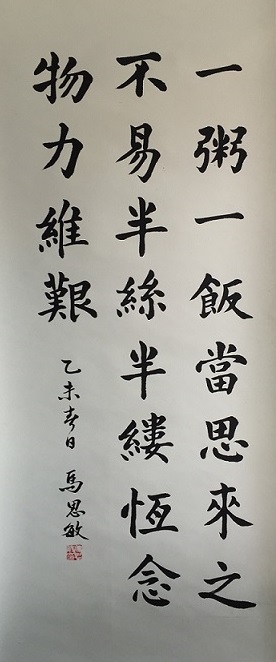 一粥一飯當思來之
不易半絲半縷恆念
物力維艱
乙未春日 馬思敏